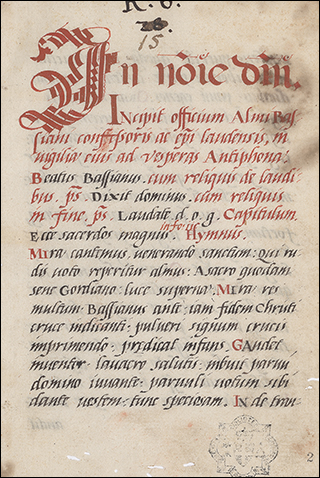 R. 6.
26.
15
In nõie dñi,
Incipit officium Almi Bas
siani confessoris ac epi laudensis, in
uigilia eius ad vesperas Antiphona:
Beatus Bassianus. cum reliquis de laudi
bus. ps. Dixit dominus. cum reliquis
in fine, ps. Laudate. d. o. g. Capitulum.
Ecce sacerdos magnus. Hymnus.
Mira cantemus, venerando sanctum: qui ru
dis uoto reperitur almus: A sacro quodam
sene Gordiano: luce superna. Mira res
multum: Bassianus ante, iam fidem Christi
cruce indicanti: pulueri signum crucis
imprimendo: prædicat infans. Gaudet
inuentor, lauacro salutis, imbuit paruū
domino iuuante: paruuli uotum sibi
dante vestem: tunc speciosam. In de tran-
2